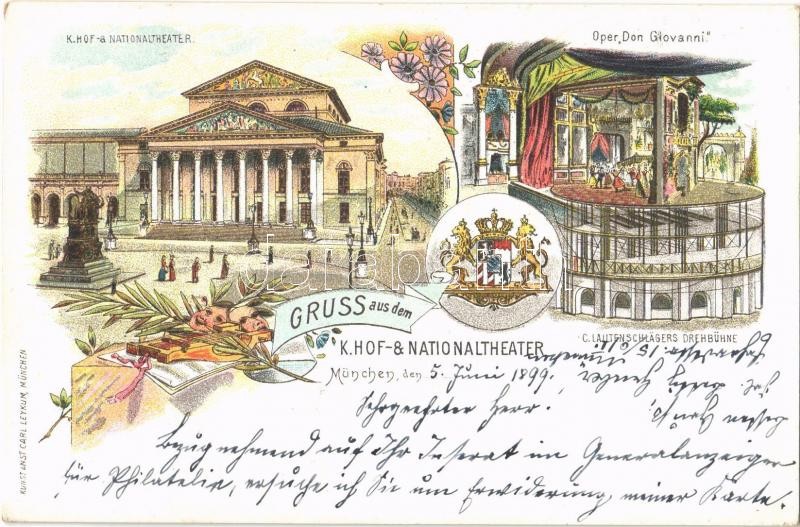 K. HOF- & NATIONALTHEATER.
Oper „Don Giovanni."
GRUSS aus dem
K. HOF- & NATIONALTHEATER
C. LAUTENSCHLAGERS DREHBÜHNE
München, den 5. Juni 1899.
Sehrgeehrter Herr!
Bezugnehmend auf Ihr Inserat im Generalanzeiger
für Philatelie, ersuche ich Sie um Erwiderung meiner Karte.
KUNSTANST. CARL LEYKUM, MÜNCHEN